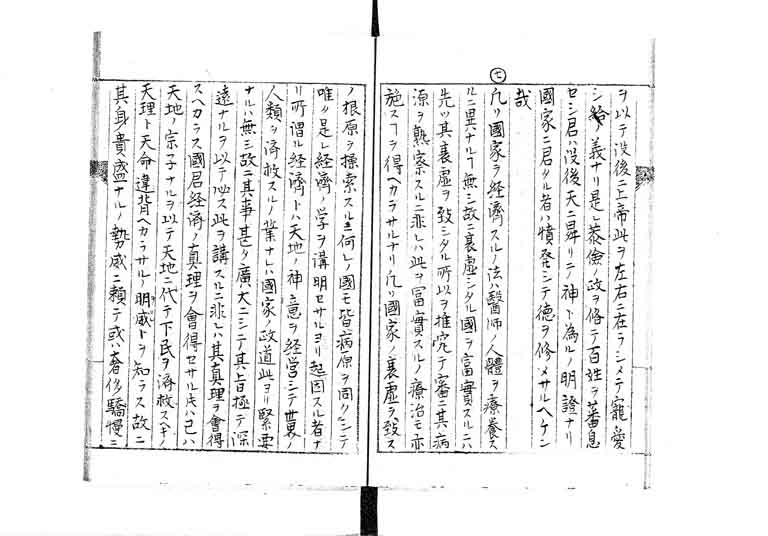 ヲ以テ没後ニ上帝此ヲ左右ニ在ラシメテ寵愛
シ給ノ義ナリ是レ恭儉ノ政ヲ脩テ百姓ヲ蕃息
セシ君ハ没後天ニ昇リテ神ト為ルノ明證ナリ
國家ニ君タル者ハ憤発シテ徳ヲ修メサルヘケン
哉
七
凡ソ國家ヲ経濟スルノ法ハ醫師ノ人體ヲ療養ス
ルニ異ナルヿ無シ故ニ衰虚シタル國ヲ富實スルニハ
先ツ其衰虚ヲ致シタル所以ヲ推究テ審ニ其病
源ヲ熟察スルニ非レハ此ヲ冨實スルノ療治モ亦
施スヿヲ得ヘカラサルナリ凡ソ國家ノ衰虚ヲ致ス
ノ根原ヲ探索スルニ何レノ國モ皆病原ヲ同クシテ
唯タ是レ経濟ノ学ヲ講明セサルヨリ起因スル者ナ
リ所謂ル経濟トハ天地ノ神意ヲ経営シテ世界ノ
人類ヲ済救スルノ業ナレハ國家ノ政道此ヨリ緊要
ナルハ無シ故ニ其事甚タ廣大ニシテ其旨極テ深
遠ナルヲ以テ必ス此ヲ講スルニ非レハ其真理ヲ會得
スヘカラス國君経濟ノ真理ヲ會得セサル片ハ己ハ
天地ノ宗子ナルヲ以テ天地ニ代テ下民ヲ済救スヘキノ
天理ト天命ノ違背ヘカラサルノ明威トヲ知ラス故ニ
其身ノ貴盛ナルノ勢威ニ頼テ或ハ奢侈驕慢ニ